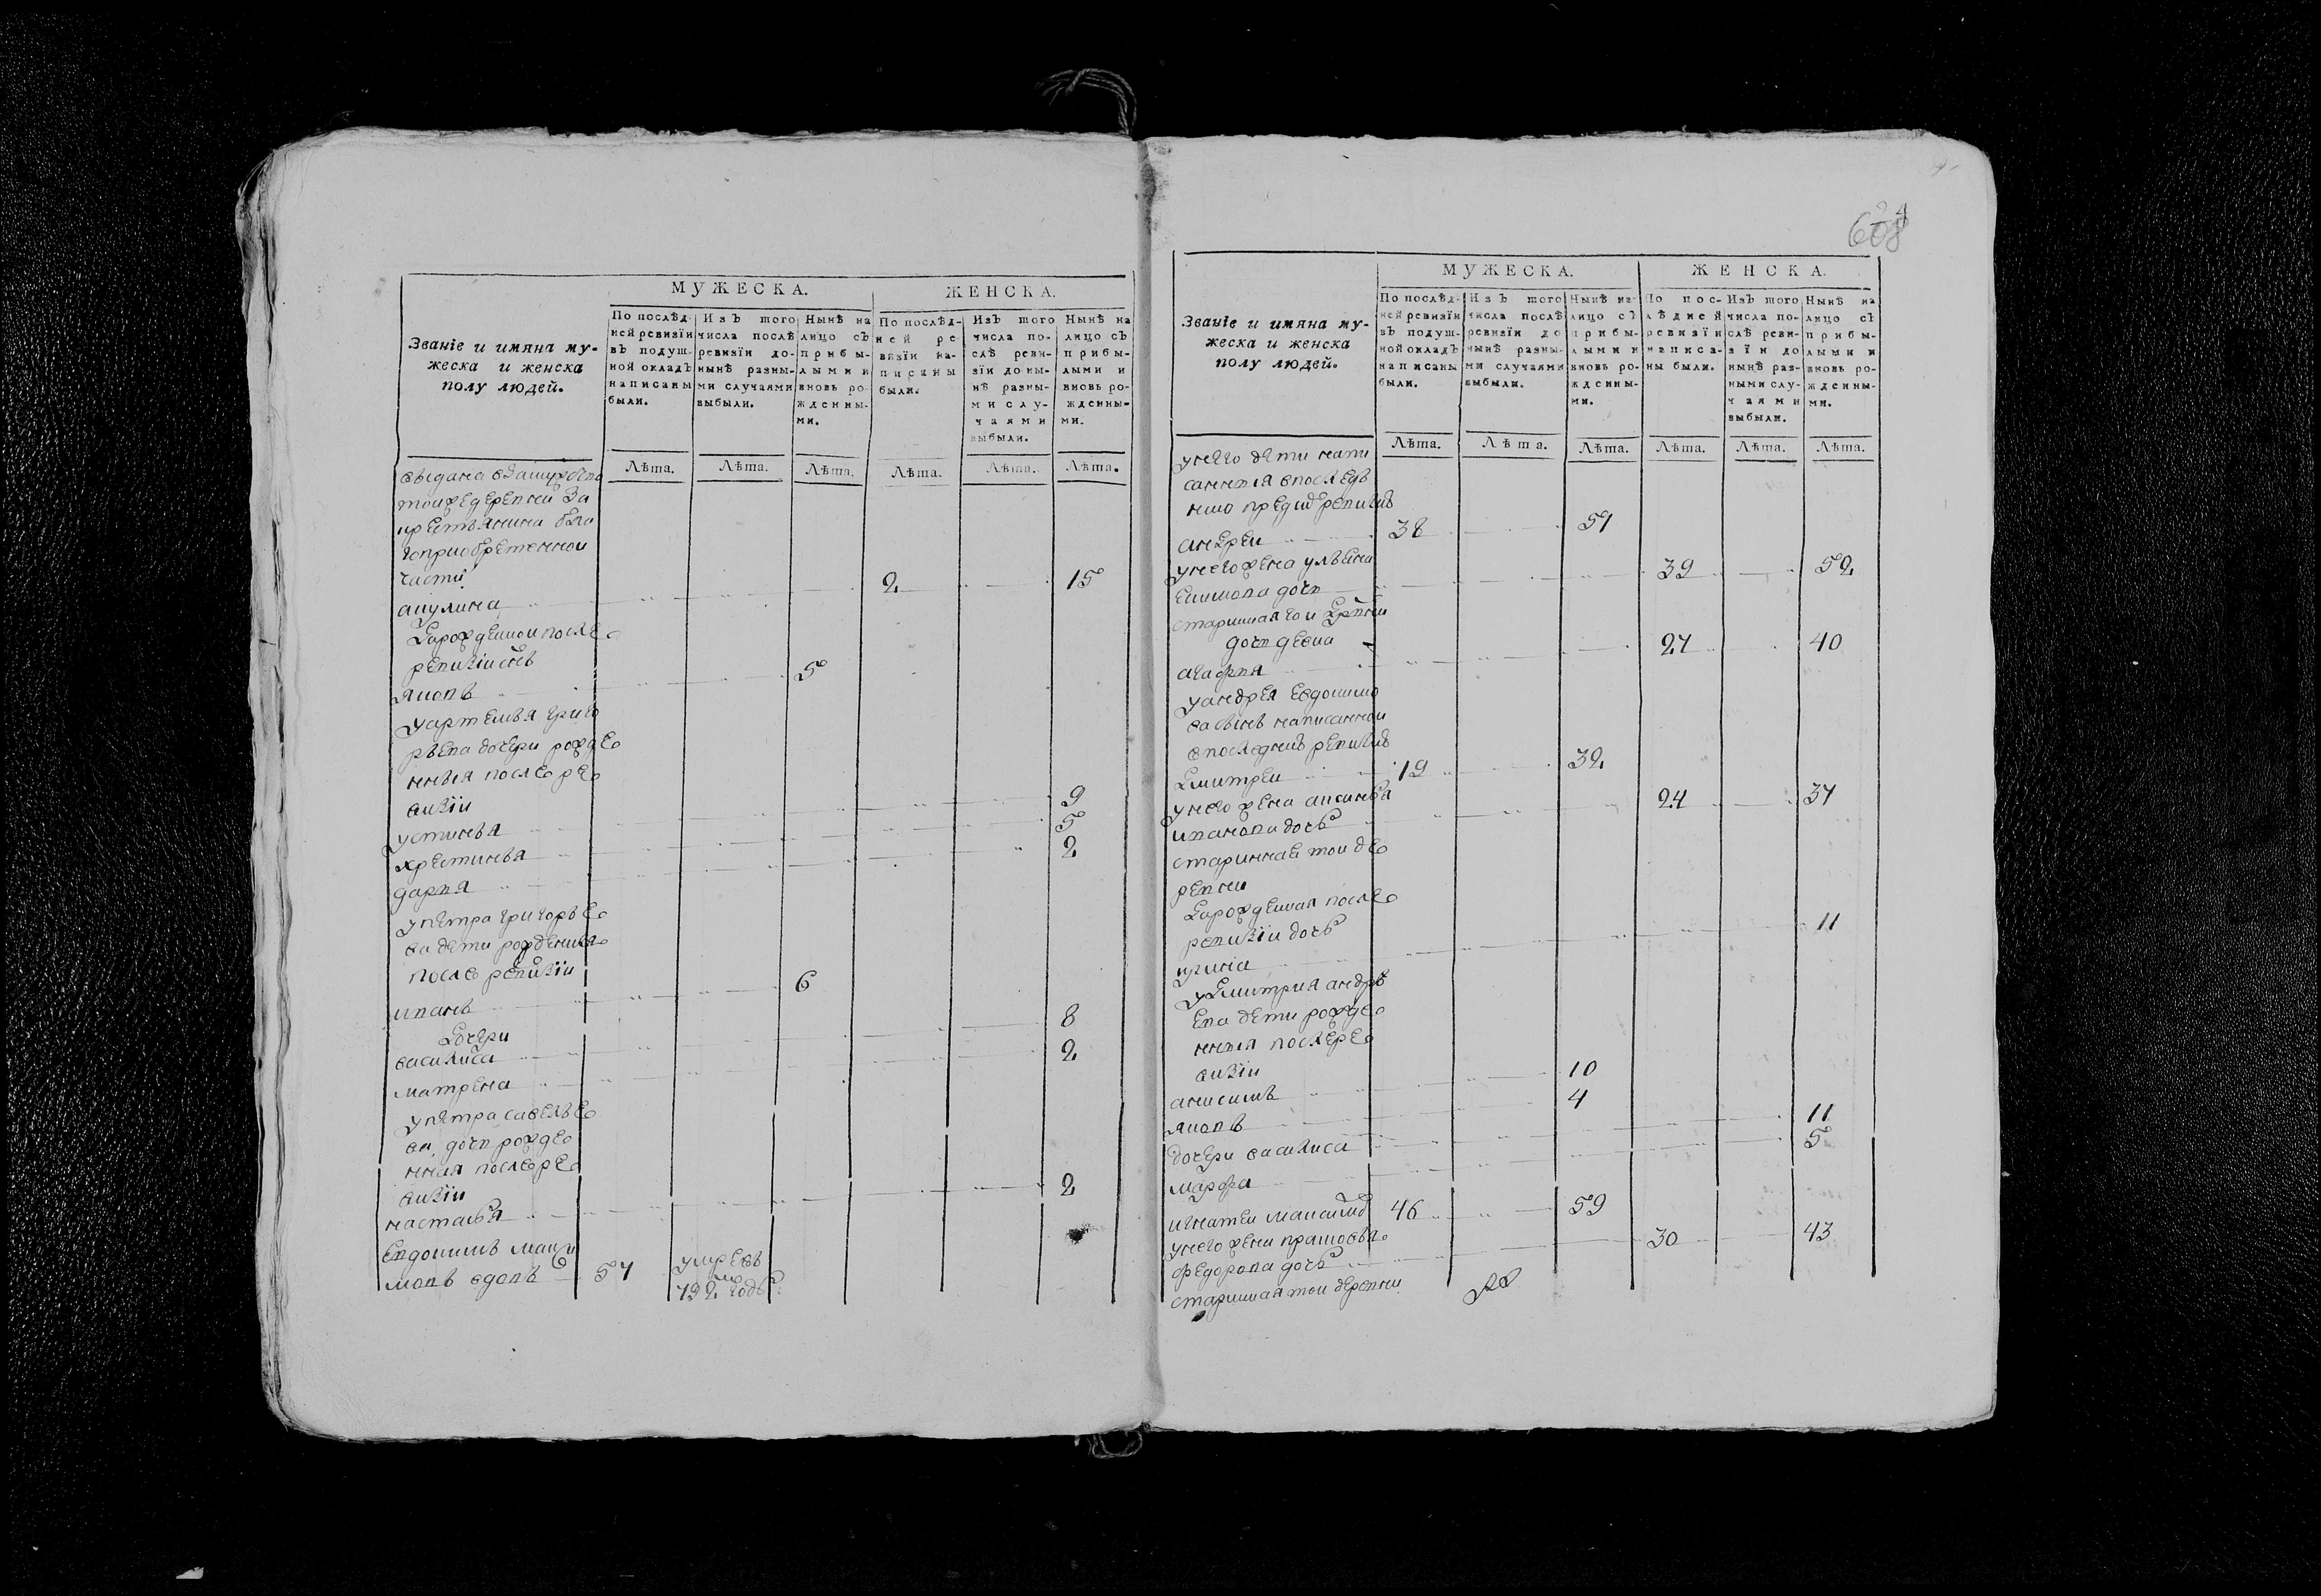 МУЖЕСКА.
ЖЕНСКА.
Званіе и имяна му-
жеска и женска
полу людей.
По послѣд-
ней ревизіи
въ подуш-
ной окладъ
написаны
были.
Изъ того
числа послѣ
ревизіи до-
нынѣ разны-
ми случаями
выбыли.
Нынѣ на
лицо съ
прибы-
лыми и
вновь ро-
жденны-
ми.
По послѣд-
ней ре
визіи на-
писаны
были.
Изъ того
числа по-
слѣ реви-
зіи до ны-
нѣ разны-
ми слу-
чаями
выбыли.
Нынѣ на
лицо съ
прибы-
лыми и
вновь ро-
жденны-
ми.
Лѣта. Лѣта. Лѣта. Лѣта. Лѣта. Лѣта.
выдана взамужство
тойже деревни за
крестьянина
гоприобретенной
части
акулина 2 15
рожденной после
ревизіи сынъ
яковъ 5
уартемья григо
рьева дочери рожде
нныя после ре
визіи
устинья 9
хрестинья 5
дарья 2
упетра григорье
ва дети рожденныя
после ревизіи
иванъ 6
дочери
василиса 8
матрена 2
упетра савелье
ва дочь рожде
нная после ре
визіи
насталья 2
Евдокимъ макси
мовъ вдовъ 57 умре въ
792 годъ
608
4
МУЖЕСКА.
ЖЕНСКА.
Званіе и имяна му-
жеска и женска
полу людей.
По послѣд-
ней ревизіи
въ подуш-
ной окладъ
написаны
были.
Изъ того
числа послѣ
ревизіи до
нынѣ разны-
ми случаями
выбыли.
Нынѣ на
лицо съ
прибы-
лыми и
вновь ро-
жденны-
ми.
По пос-
лѣдней
ревизіи
написа-
ны были.
Изъ того
числа по-
слѣ реви-
зіи до
нынѣ раз-
ными слу-
чаями
выбыли.
Нынѣ на
лицо съ
прибы-
лыми и
вновь ро-
жденны-
ми.
Лѣта. Лѣта. Лѣта. Лѣта. Лѣта. Лѣта.
унего дети напи
санныя впослед
андреи 38 51
унего жена ульяна
Екимова дочь 39 52
дочь девка
агафья 27 40
уандрея Евдокимо
ва сынъ написанной
впоследней ревизіи
дмитреи 19 32
унего жена аксинья
иванова дочь 24 37
старинная той де
ревни
рожденная после
ревизіи дочь
11
удмитрия андре
ева дети рожде
нныя после ре
визіи
анисимъ 10
яковъ 4
дочери василиса 11
марфа 5
игнатеи максимо 46 59
унего жена прасковья
федорова дочь 30 43
старинная той деревни